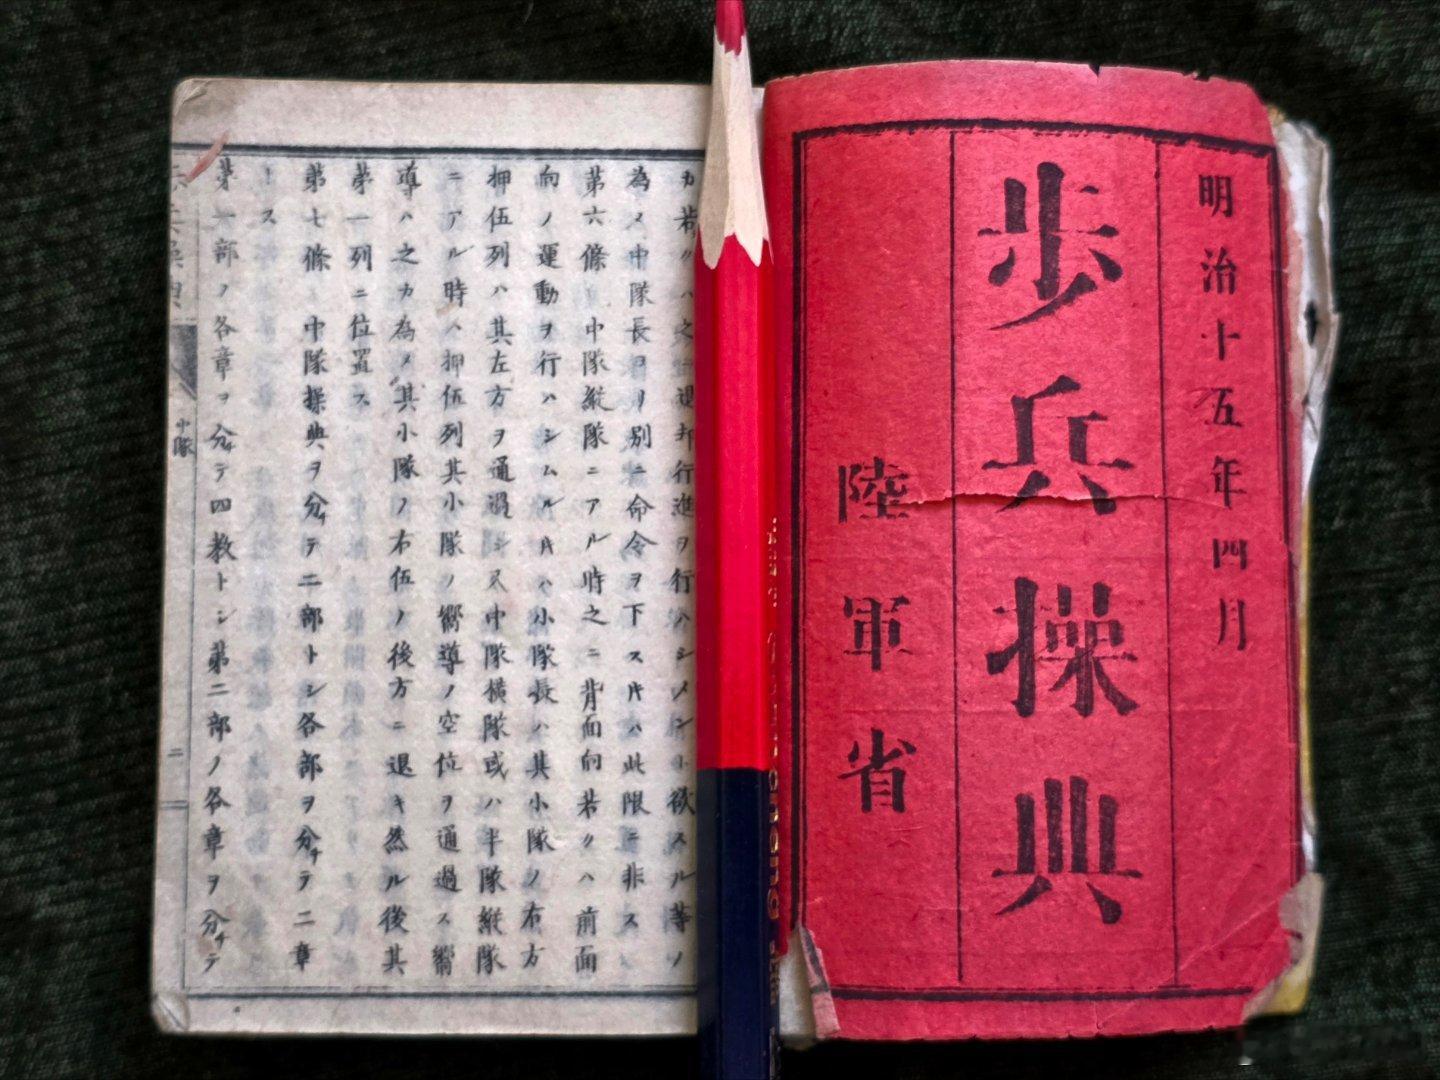 明治十五年四月
歩兵操典
陸軍省
カ若クハ之 退却行進ヲ行ハシメント欲スル等ノ
為メ中隊長ヨリ別ニ命令ヲ下ス片ハ此限ニ非ス
第六條 中隊縦隊ニアル時之ニ背面向若クハ前面
向ノ運動ヲ行ハシムル片ハ小隊長ハ其小隊ノ右方
押伍列ハ其左方ヲ通過シ又中隊横隊或ハ半隊縦隊
ニアル時ハ押伍列其小隊ノ嚮導ノ空位ヲ通過ス嚮
導ハ之カ為メ其小隊ノ右伍ノ後方ニ退キ然ル後其
第一列ニ位置ス
第七條 中隊操典ヲ分チテ二部トシ各部ヲ分チテ二章
トス
第一部ノ各章ヲ分チテ四教トシ第二部ノ各章ヲ分チテ
中隊
二